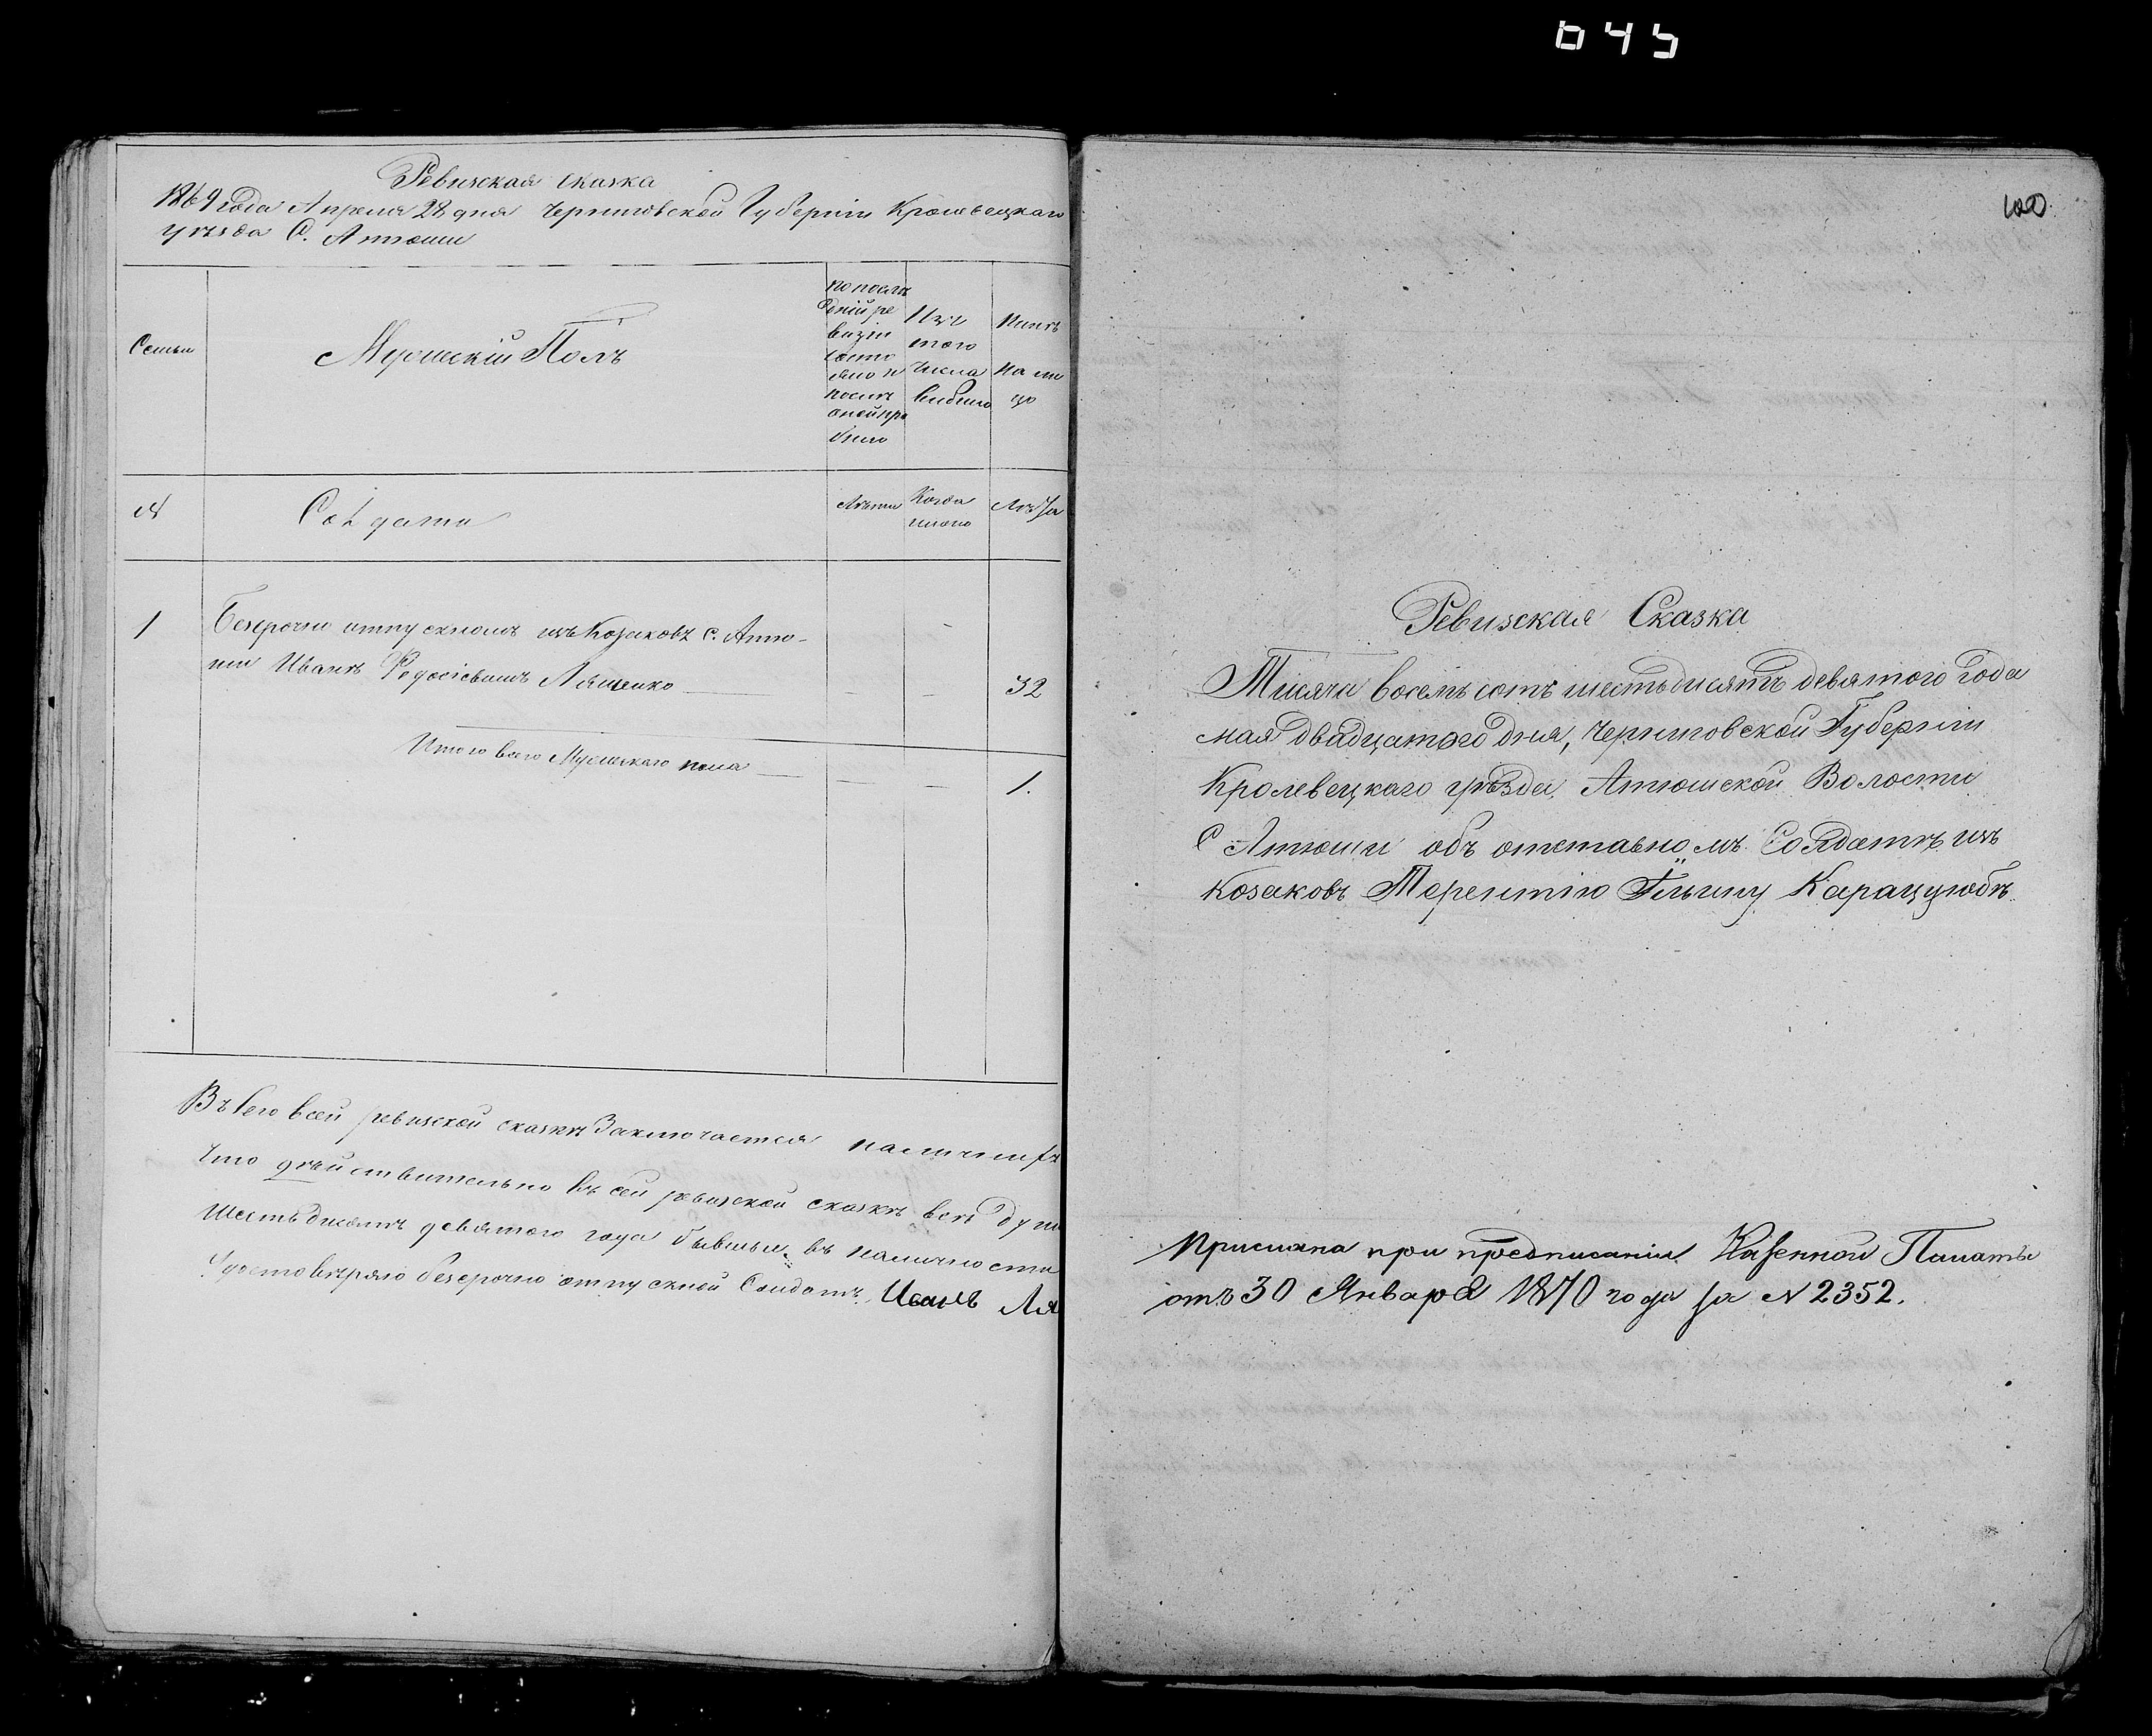 645
Ревизская сказка
1869 года Апреля 28 дня Черниговской Губерніи Кролевецкаго
уѣзда С. Атюши
Семьи
Мужескій Полъ
по послѣ
дній ре
визіи
состо
яло и
послѣ
оной при
было
Изъ
того
числа
выбыло
Нынѣ
на ли
цо
№
Солдаты
Лѣта
Когда
именно
Лѣта
1
Безсрочно отпускной изъ Козаковъ с. Атю-
ши Иванъ Федосіевичъ Ляшенко
32
Итого всего Мужескаго пола
1.
Въ сей ревизской сказкѣ Заключается наличныхъ
Что дѣйствительно въ сей ревизской сказкѣ всѣ души
шестьдисятъ девятого года бывшыя въ наличности
Удостовѣряю безсрочно отпускной Солдатъ Иванъ Ля
100
Ревизская Сказка
Тисяча восемь сотъ шестьдисятъ девятого года
мая двадцатого дня, Черниговской Губерніи
Кролевецкаго уѣзда, Атюшской Волости
С Атюши объ отставномъ Солдатѣ изъ
Козаковъ Терентію Ильину Карацюбѣ.
Прислана при предписаніи Казенной Палаты
отъ 30 Января 1870 года за № 2352.